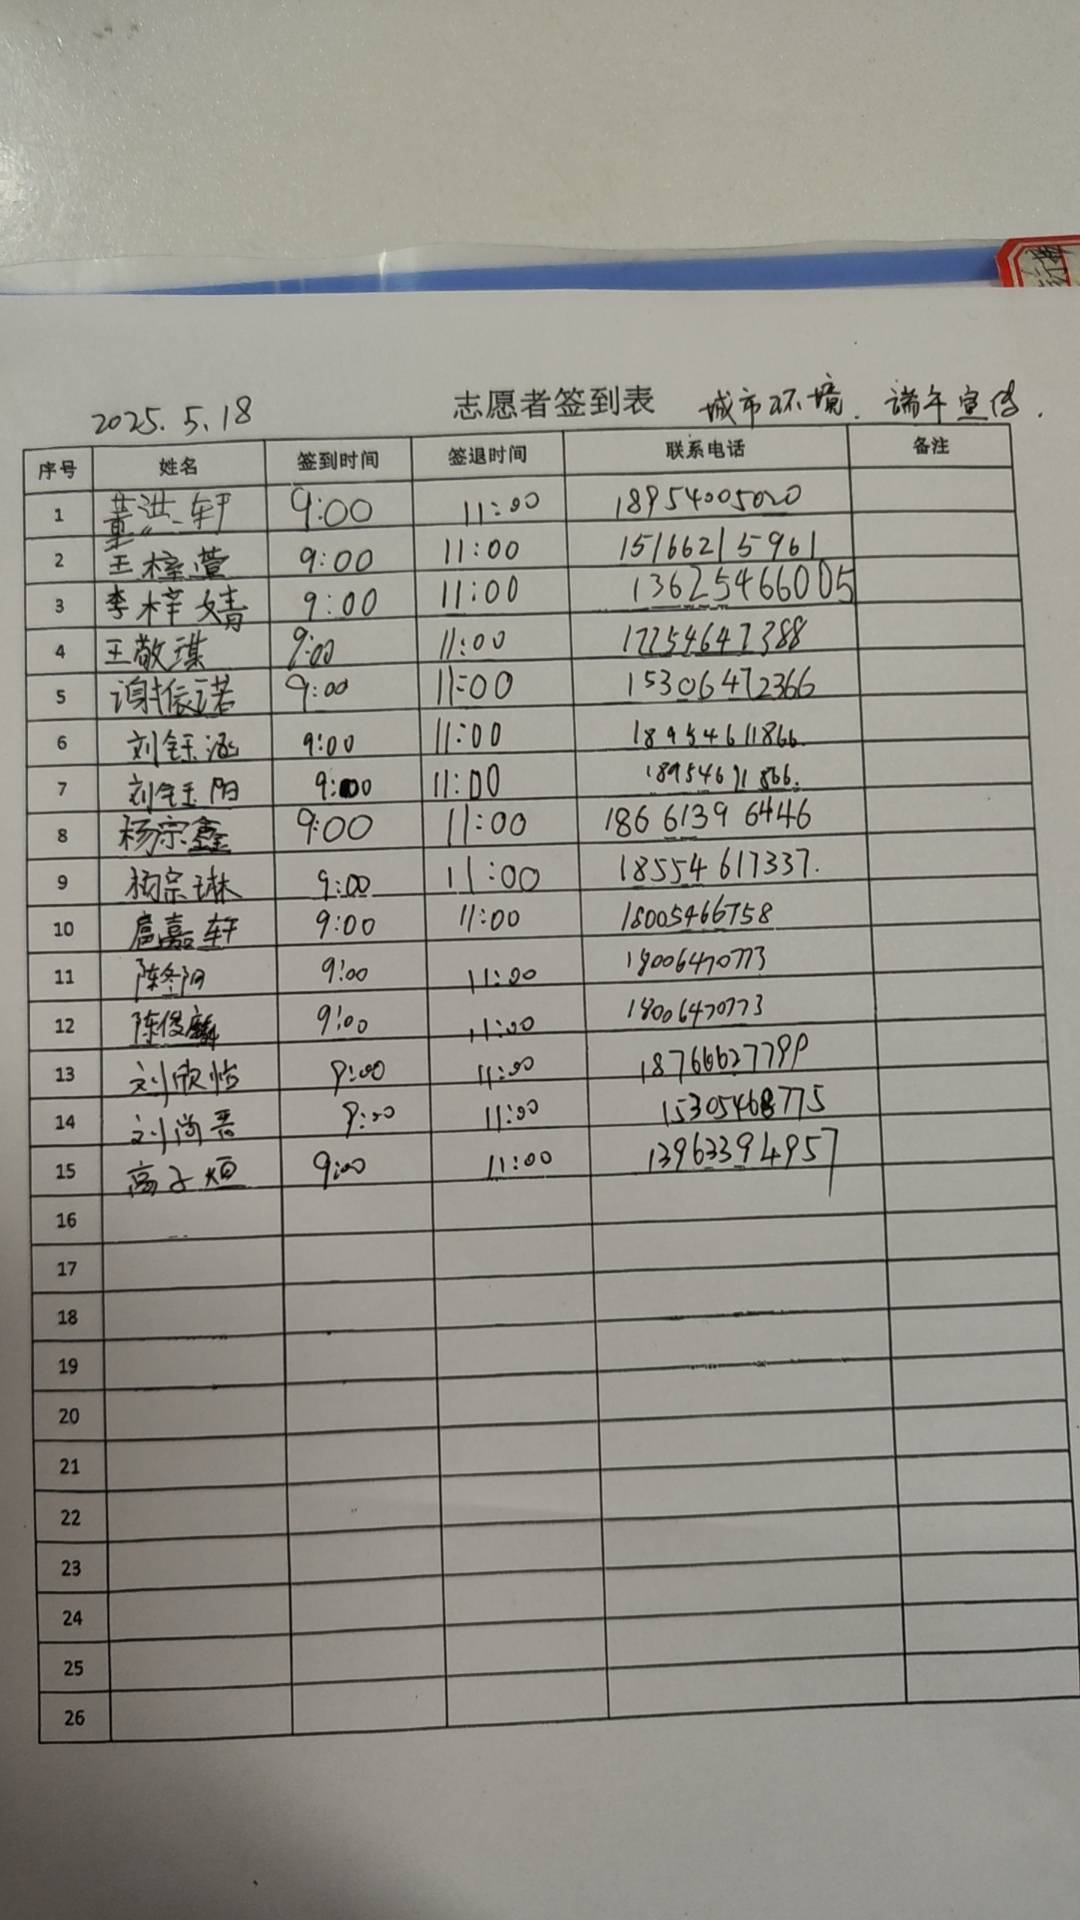 2025.5.18 志愿者签到表 城市环境. 端午宣传.
序号 姓名 签到时间 签退时间 联系电话 备注
1 董洪轩 9:00 11:00 18954005020
2 王梓萱 9:00 11:00 15166215961
3 李梓婧 9:00 11:00 13625466005
4 王敬琪 9:00 11:00 17254647388
5 谢依诺 9:00 11:00 15306472366
6 刘钰涵 9:00 11:00 18954611866.
7 刘钰阳 9:00 11:00 18954611866.
8 杨宗鑫 9:00 11:00 18661396446
9 杨宗琳 9:00 11:00 18554617337.
10 扈嘉轩 9:00 11:00 18005466758
11 陈冬阳 9:00 11:00 18006470773
12 陈俊麟 9:00 11:00 18006470773
13 刘欣怡 9:00 11:00 18766627799
14 刘尚晋 9:00 11:00 15305468775
15 高子烜 9:00 11:00 13963394957
16
17
18
19
20
21
22
23
24
25
26